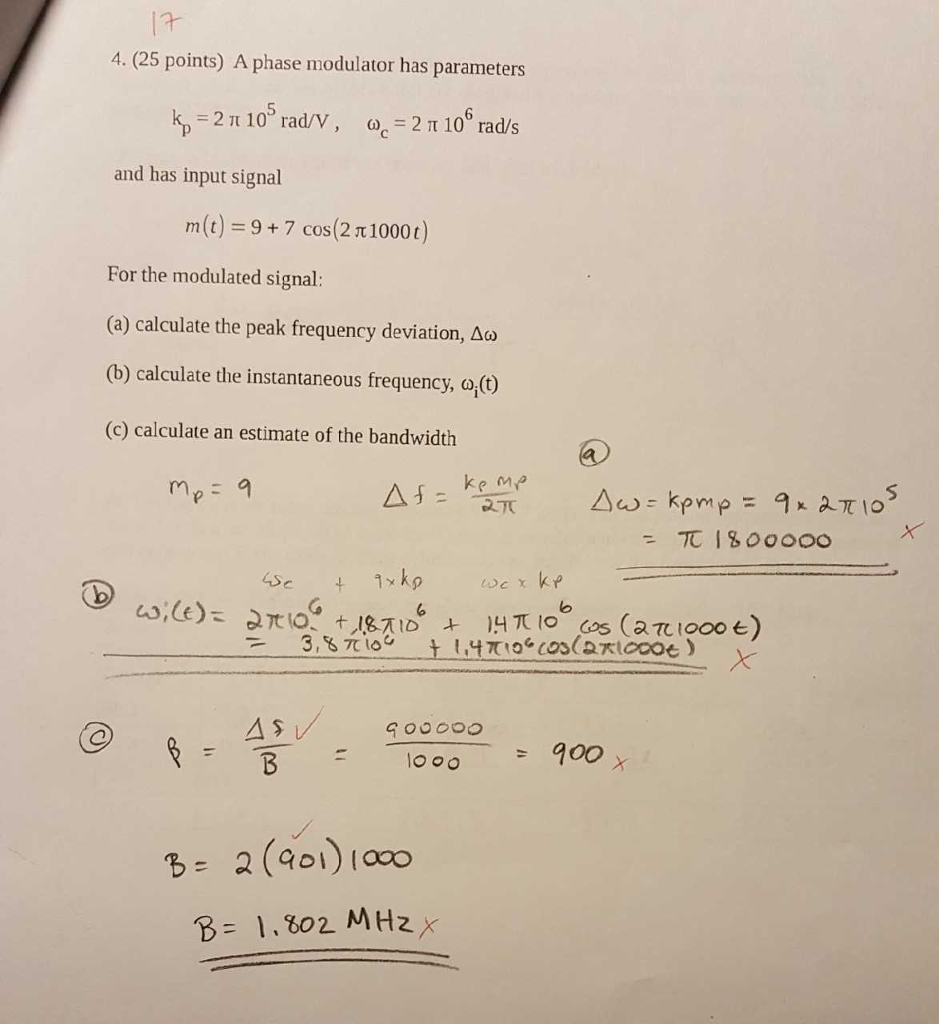 17
4. (25 points) A phase modulator has parameters
k_p = 2 π 10^5 rad/V , ω_c = 2 π 10^6 rad/s
and has input signal
m(t) = 9 + 7 cos(2 π 1000 t)
For the modulated signal:
(a) calculate the peak frequency deviation, Δω
(b) calculate the instantaneous frequency, ω_i(t)
(c) calculate an estimate of the bandwidth
m_p = 9
Δf = kp mp / 2π
(a)
Δω = kpmp = 9 x 2π10^5
= π 1800000 ×
(b)
ωc + 9xkp ωc x kp
ωi(t) = 2π10^6 + 1.8π10^6 + 1.4π10^6 cos(2π1000t)
= 3.8π10^6 + 1.4π10^6 cos(2π1000t) ×
(c)
β = Δf / B ✓ = 900000 / 1000 = 900 ×
✓
B = 2(901)1000
B = 1.802 MHz ×